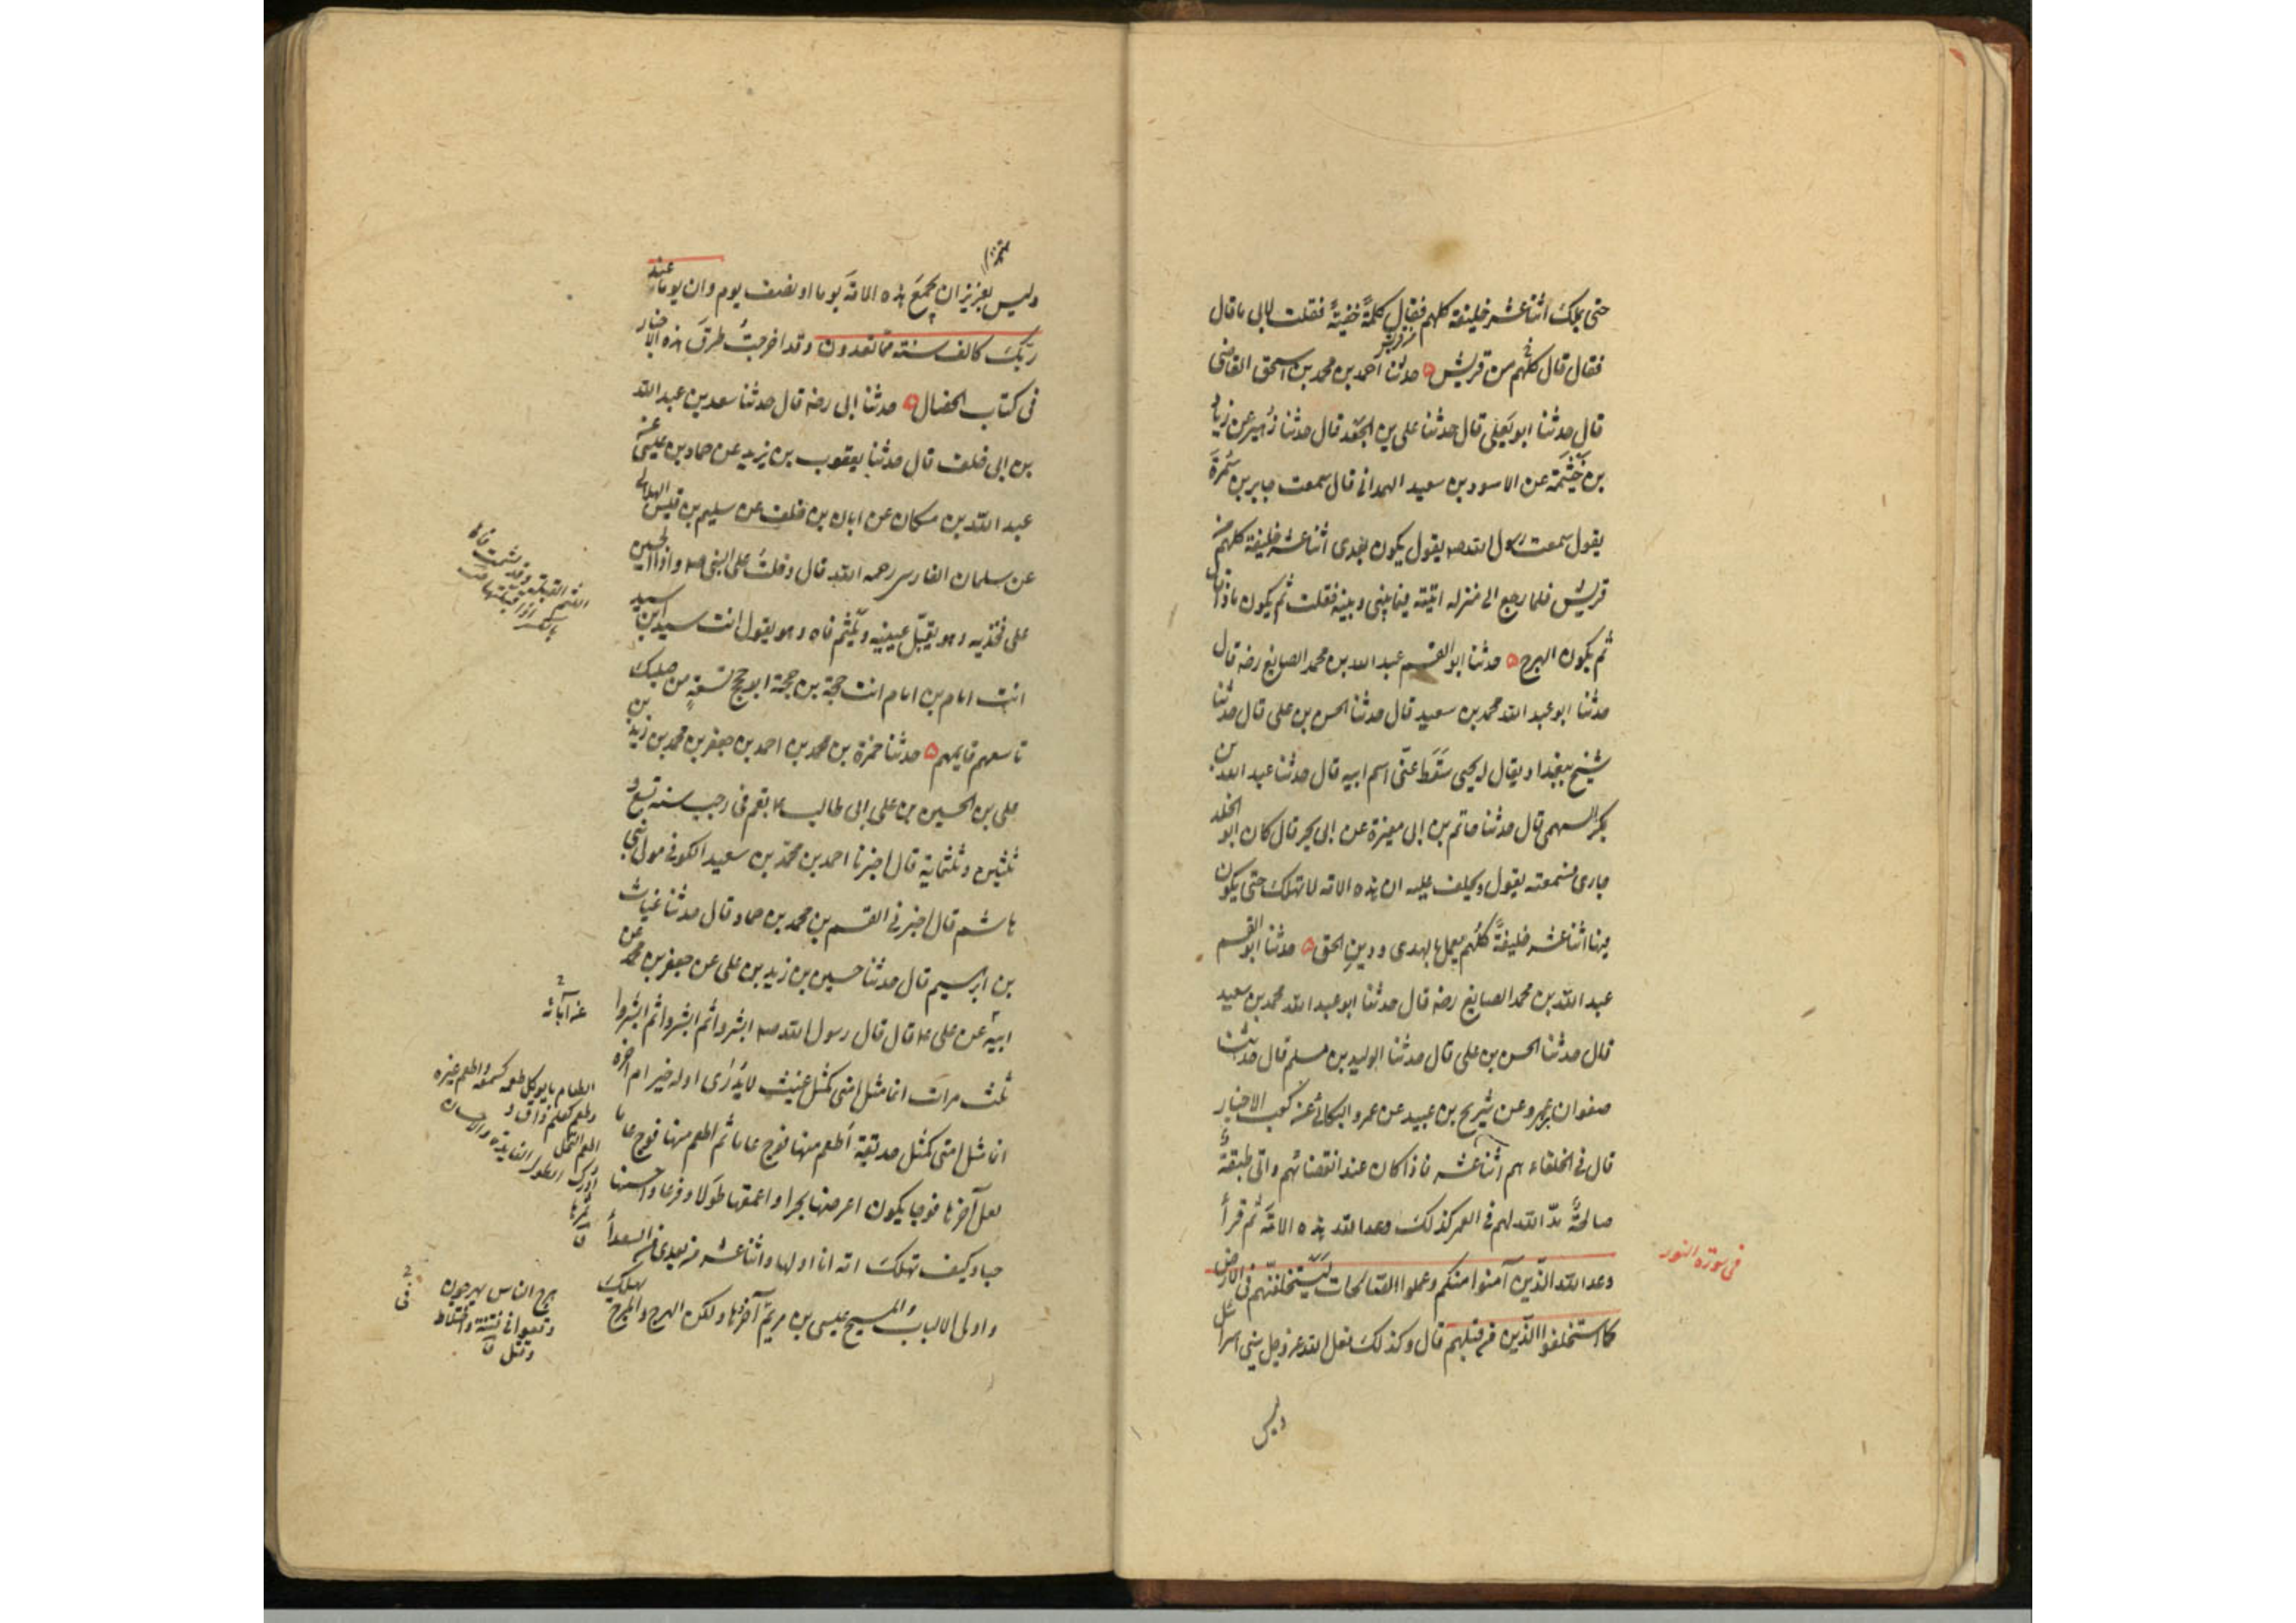 حتى يملك اثنا عشر خليفة كلهم فقال كلمة خفيّة فقلت لابى ما قال
فقال قال كلّهم من قريش حدثنا احمد بن محمد بن اسحق القاضى
قال حدثنا ابو يَعلى قال حدثنا على بن الجَعْد قال حدثنا زُهير عن زياد
بن خَيثَمَة عن الاسود بن سعيد الهمدانى قال سمعت جابر بن سَمُرَة
يقول سمعت رسول الله صم يقول يكون بَعدى اثنا عشر خليفة كلهم من
قريش فلما رجع الى منزله اتيته فيما بينى وبينه فقلت ثم يكون ماذا قال
ثم يكون الهرج حدثنا ابو القسم عبد الله بن محمد الصايغ رضه قال
حدثنا ابو عبد الله محمد بن سعيد قال حدثنا الحسن بن على قال حدثنا
شيخ ببغداد يقال له يحيى سَقَط عنّى اسم ابيه قال حدثنا عبد الله بن
بكر السهمى قال حدثنا حاتم بن ابى مغيرة عن ابى بحر قال كان ابو الخلد
جارى فسمعته يقول ويحلف عليه ان هذه الامة لا تهلك حتى يكون
فيها اثنا عشر خليفةً كلّهم يعمل بالهدى ودينِ الحق حدثنا ابو القسم
عبد الله بن محمد الصايغ رضه قال حدثنا ابو عبد الله محمد بن سعيد
قال حدثنا الحسن بن على قال حدثنا الوليد بن مسلم قال حدثنا
صفوان بن عمرو عن شريح بن عبيد عن عمرو البكائى عن كعب الاحبار
قال فى الخلفاء هم اثنا عشر فاذا كان عند انقضائهم واتى طبقةٌ
صالحةٌ مدّ الله لهم فى العمر كذلك وعد الله هذه الامّة ثم قرأ
وعد الله الّذين آمنوا منكم وعملوا الصّالحات لَيَستخلفنّهم فى الارض
فى سورة النور
كما استخلفوا الّذين من قبلهم قال وكذلك فعل الله عز وجل ببنى اسرائيل
وليس
وليس بعزيز ان يجمَعَ هذه الامة يوما او نصف يوم وان يوما عند
ربّك كالف سنة مما تعدون وقد اخرجتُ طرقَ هذه الاخبار
فى كتاب الخصال حدثنا ابى رضه قال حدثنا سعد بن عبد الله
بن ابى خلف قال حدثنا يعقوب بن يزيد عن حماد بن عيسى عن
عبد الله بن مسكان عن ابان بن خلف عن سليم بن قيس الهلالى
عن سلمان الفارسى رحمه الله قال دخلتُ على النبى صم واذا الحسين
على فخذيه وهو يقبّل عينيه ويَلثم فاه وهو يقول انت سيد ابن سيد
انت امام بن امام انت حجّة بن حجّة ابو حجج تسعةٍ من صلبك
تاسعهم قايمهم حدثنا حمزة بن محمد بن احمد بن جعفر بن محمد بن زيد بن
على بن الحسين بن على ابى طالب ع بقم فى رجب سنة تسع و
ثلثين وثلثماية قال اخبرنا احمد بن محمّد بن سعيد الكوفى مولى بنى
هاشم قال اخبرنى القسم بن محمد بن حماد قال حدثنا غياث
بن ابرهيم قال حدثنا حسين بن زيد بن على عن جعفر بن محمد عن
ابيه عن على ع قال قال رسول الله صم ابشروا ثم ابشروا ثم ابشروا
عن آبائه
ثلث مرات انما مثل امتى كمثل غيث لا يُدرَى اوله خير ام اخره
انما مثل امتى كمثل حديقة اُطعم منها فوج عاما ثم اطعم منها فوج عاما
لعل آخرها فوجا يكون اعرضها بحرا واعمقها طولا وفرعا واحسنها
حبا وكيف تهلك امّة انا اولها واثنا عشر من بعدى من السعداء
واولى الالباب والمسيح عيسى بن مريم آخرها ولكن يهلك الهرج والمرج
هرج الناس يهرجون
وقعوا فى فتنة واختلاط
وقتل ق